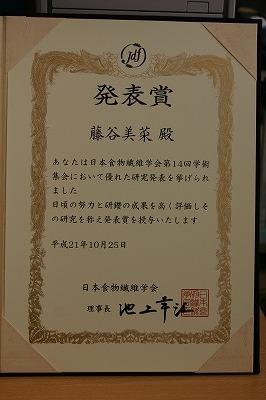 jdf
発表賞
藤谷美菜 殿
あなたは日本食物繊維学会第14回学術
集会において優れた研究発表を挙げられ
ました
日頃の努力と研鑽の成果を高く評価しそ
の研究を称え発表賞を授与いたします
平成21年10月25日
日本食物繊維学会
理事長 池上幸江